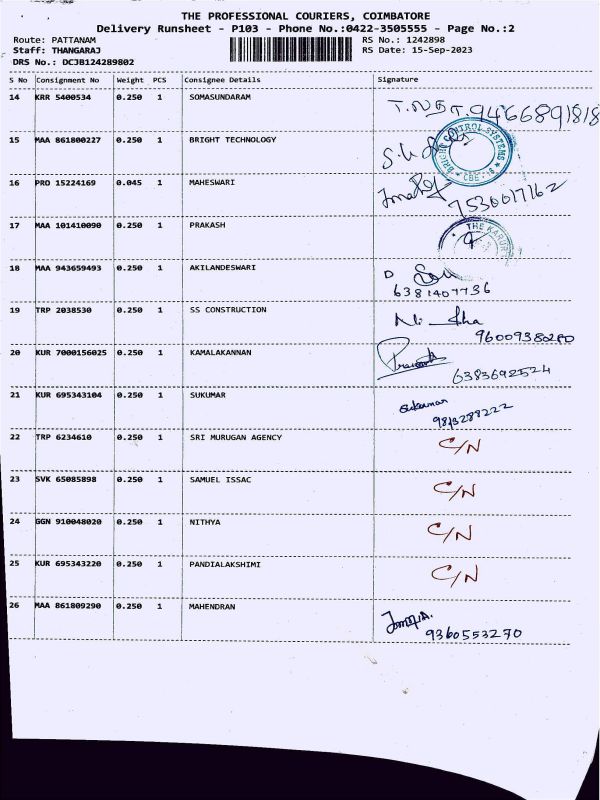 THE PROFESSIONAL COURIERS, COIMBATORE
Delivery Runsheet - P103 - Phone No.:0422-3505555 - Page No.:2
Route: PATTANAM RS No.: 1242898
Staff: THANGARAJ RS Date: 15-Sep-2023
DRS No.: DCJB124289802
S No Consignment No Weight PCS Consignee Details Signature
14 KRR 5400534 0.250 1 SOMASUNDARAM
15 MAA 861800227 0.250 1 BRIGHT TECHNOLOGY
BRIGHT CONTROL SYSTEMS
★ CBE-16 ★
16 PRO 15224169 0.045 1 MAHESWARI
7530017162
17 MAA 101410090 0.250 1 PRAKASH
THE KARUR
18 MAA 943659493 0.250 1 AKILANDESWARI
D
6381407736
19 TRP 2038530 0.250 1 SS CONSTRUCTION
20 KUR 7000156025 0.250 1 KAMALAKANNAN
6383692524
21 KUR 695343104 0.250 1 SUKUMAR
sukumar
22 TRP 6234610 0.250 1 SRI MURUGAN AGENCY C/N
23 SVK 65085898 0.250 1 SAMUEL ISSAC C/N
24 GGN 910048020 0.250 1 NITHYA C/N
25 KUR 695343220 0.250 1 PANDIALAKSHIMI C/N
26 MAA 861809290 0.250 1 MAHENDRAN
9360553270